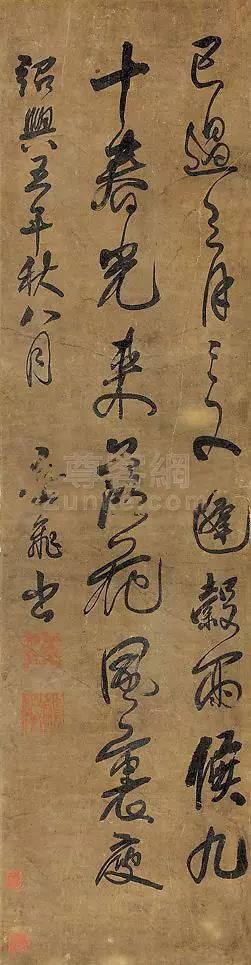 已過三月三又逢穀雨候九
十春光來落花風裏度
紹興五年秋八月
岳飛書
尊客網